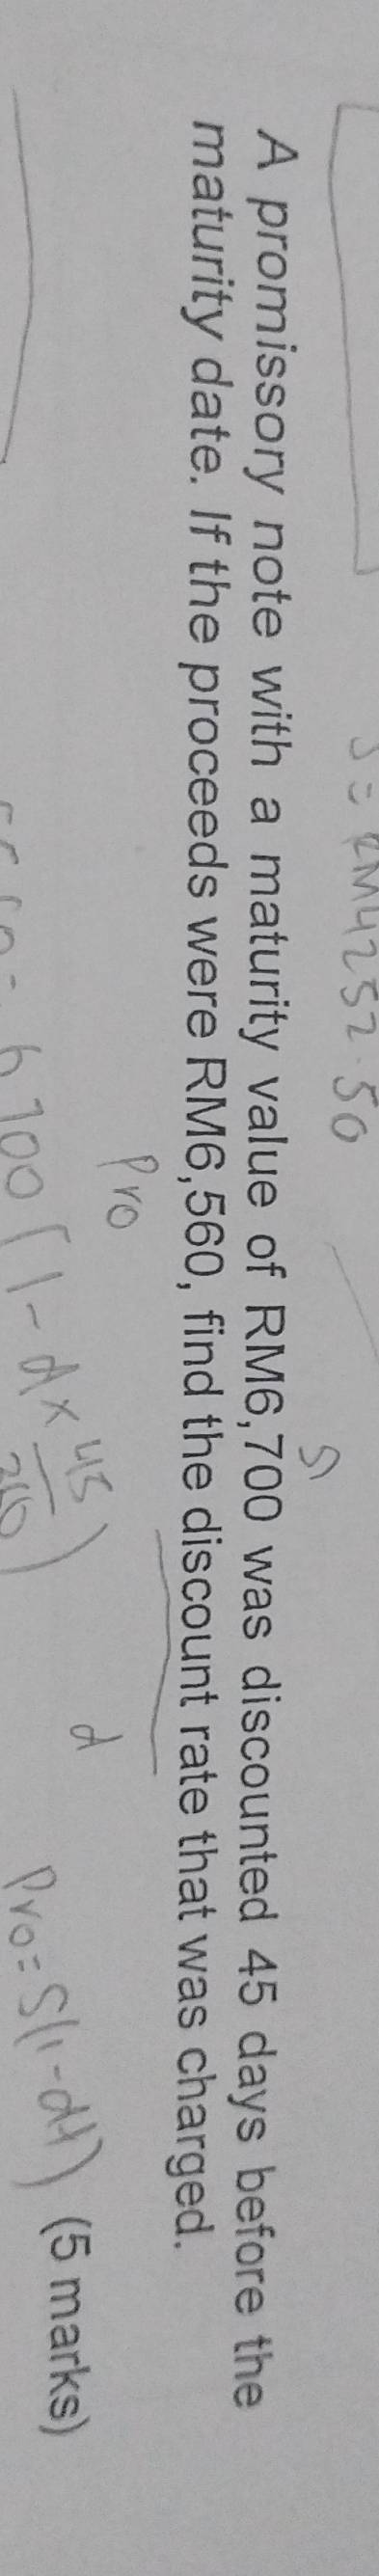 S = RM4252.50
A promissory note with a maturity value of RM6,700 was discounted 45 days before the
S
maturity date. If the proceeds were RM6,560, find the discount rate that was charged.
Pro
d
Pro = S(1-dt) (5 marks)
6700 (1 - d x 45/360)